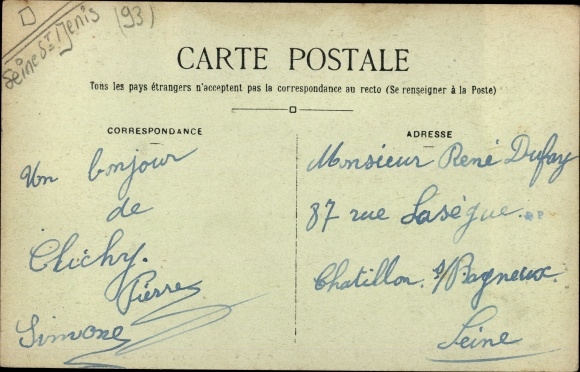 Seine St Denis (93)
CARTE POSTALE
Tous les pays étrangers n'acceptent pas la correspondance au recto (Se renseigner à la Poste)
CORRESPONDANCE
Un bonjour
de
Clichy.
Pierre
Simone
ADRESSE
Monsieur René Dufay
87 rue Lasègue
Chatillon s/Bagneux
Seine